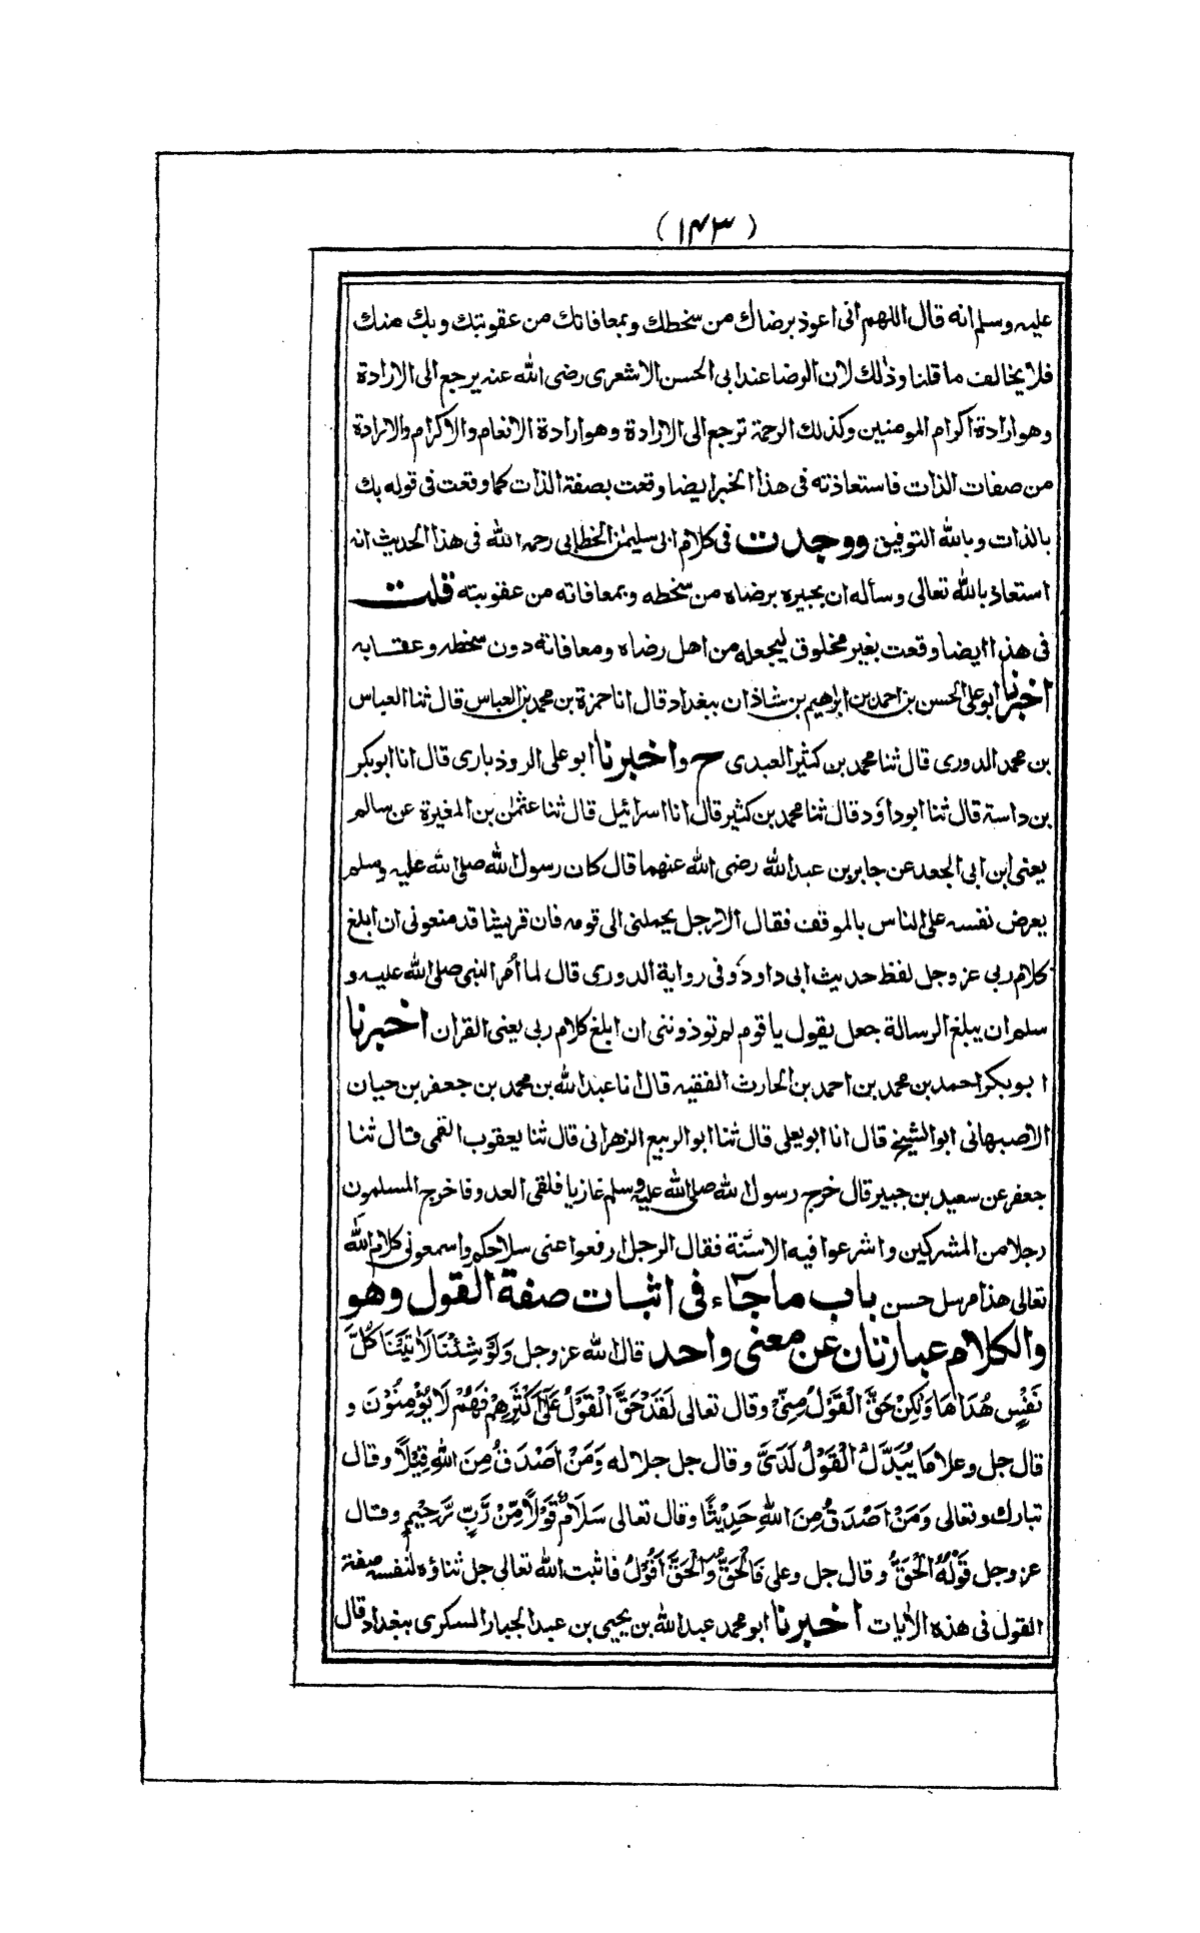 (١٤٣)
عليه وسلم انه قال اللهم انى اعوذ برضاك من سخطك وبمعافاتك من عقوبتك وبك منك
فلا يخالف ما قلنا وذلك لان الرضا عند ابى الحسن الاشعرى رضى الله عنه يرجع الى الارادة
وهو ارادة اكرام المومنين وكذلك الرحمة ترجع الى الارادة وهو ارادة الانعام والاكرام والارادة
من صفات الذات فاستعاذته فى هذا الخبر ايضا وقعت بصفة الذات كما وقعت فى قوله بك
بالذات وبالله التوفيق ووجدت فى كلام ابى سليمٰن الخطابى رحمه الله فى هذا الحديث انه
استعاذ بالله تعالى وسأله ان يجيره برضاه من سخطه وبمعافاته من عقوبته قلت
فى هذا ايضا وقعت بغير مخلوق ليجعله من اهل رضاه ومعافاته دون سخطه وعقابه
اخبرنا ابو على الحسن بن احمد بن ابراهيم بن شاذان ببغداد قال انا حمزة بن محمد بن العباس قال ثنا العباس
بن محمد الدورى قال ثنا محمد بن كثير العبدى ح واخبرنا ابو على الروذبارى قال انا ابو بكر
بن داسة قال ثنا ابو داؤد قال ثنا محمد بن كثير قال انا اسرائيل قال ثنا عثمٰن بن المغيرة عن سالم
يعنى ابن ابى الجعد عن جابر بن عبد الله رضى الله عنهما قال كان رسول الله صلى الله عليه وسلم
يعرض نفسه على الناس بالموقف فقال الا رجل يحملنى الى قومه فان قريشا قد منعونى ان ابلغ
كلام ربى عز وجل لفظ حديث ابى داود وفى رواية الدورى قال لما أمر النبى صلى الله عليه و
سلم ان يبلغ الرسالة جعل يقول يا قوم لم توذوننى ان ابلغ كلام ربى يعنى القران اخبرنا
ابو بكر احمد بن محمد بن احمد بن الحارث الفقيه قال انا عبد الله بن محمد بن جعفر بن حيان
الاصبهانى ابو الشيخ قال انا ابو يعلى قال ثنا ابو الربيع الزهرانى قال ثنا يعقوب القمى قال ثنا
جعفر عن سعيد بن جبير قال خرج رسول الله صلى الله عليه وسلم غازيا فلقى العدو فاخرج المسلمون
رجلا من المشركين واشرعوا فيه الاسنّة فقال الرجل ارفعوا عنى سلاحكم واسمعونى كلام الله
تعالى هذا مرسل حسن باب ما جاء فى اثبات صفة القول وهو
والكلام عبارتان عن معنى واحد قال الله عز وجل وَلَوْ شِئْنَا لَاٰتَيْنَا كُلَّ
نَفْسٍ هُدَاهَا وَلٰكِنْ حَقَّ الْقَوْلُ مِنِّىْ وقال تعالى لَقَدْ حَقَّ الْقَوْلُ عَلٰٓى اَكْثَرِهِمْ فَهُمْ لَا يُؤْمِنُوْنَ و
قال جل وعلا مَا يُبَدَّلُ الْقَوْلُ لَدَىَّ وقال جل جلاله وَمَنْ اَصْدَقُ مِنَ اللهِ قِيْلًا وقال
تبارك وتعالى وَمَنْ اَصْدَقُ مِنَ اللهِ حَدِيْثًا وقال تعالى سَلَامٌ قَوْلًا مِّنْ رَّبٍّ رَّحِيْمٍ وقال
عز وجل قَوْلُهُ الْحَقُّ وقال جل وعلى فَالْحَقُّ وَالْحَقَّ اَقُوْلُ فاثبت الله تعالى جل ثناؤه لنفسه صفة
القول فى هذه الاٰيات اخبرنا ابو محمد عبد الله بن يحيى بن عبد الجبار السكرى ببغداد قال